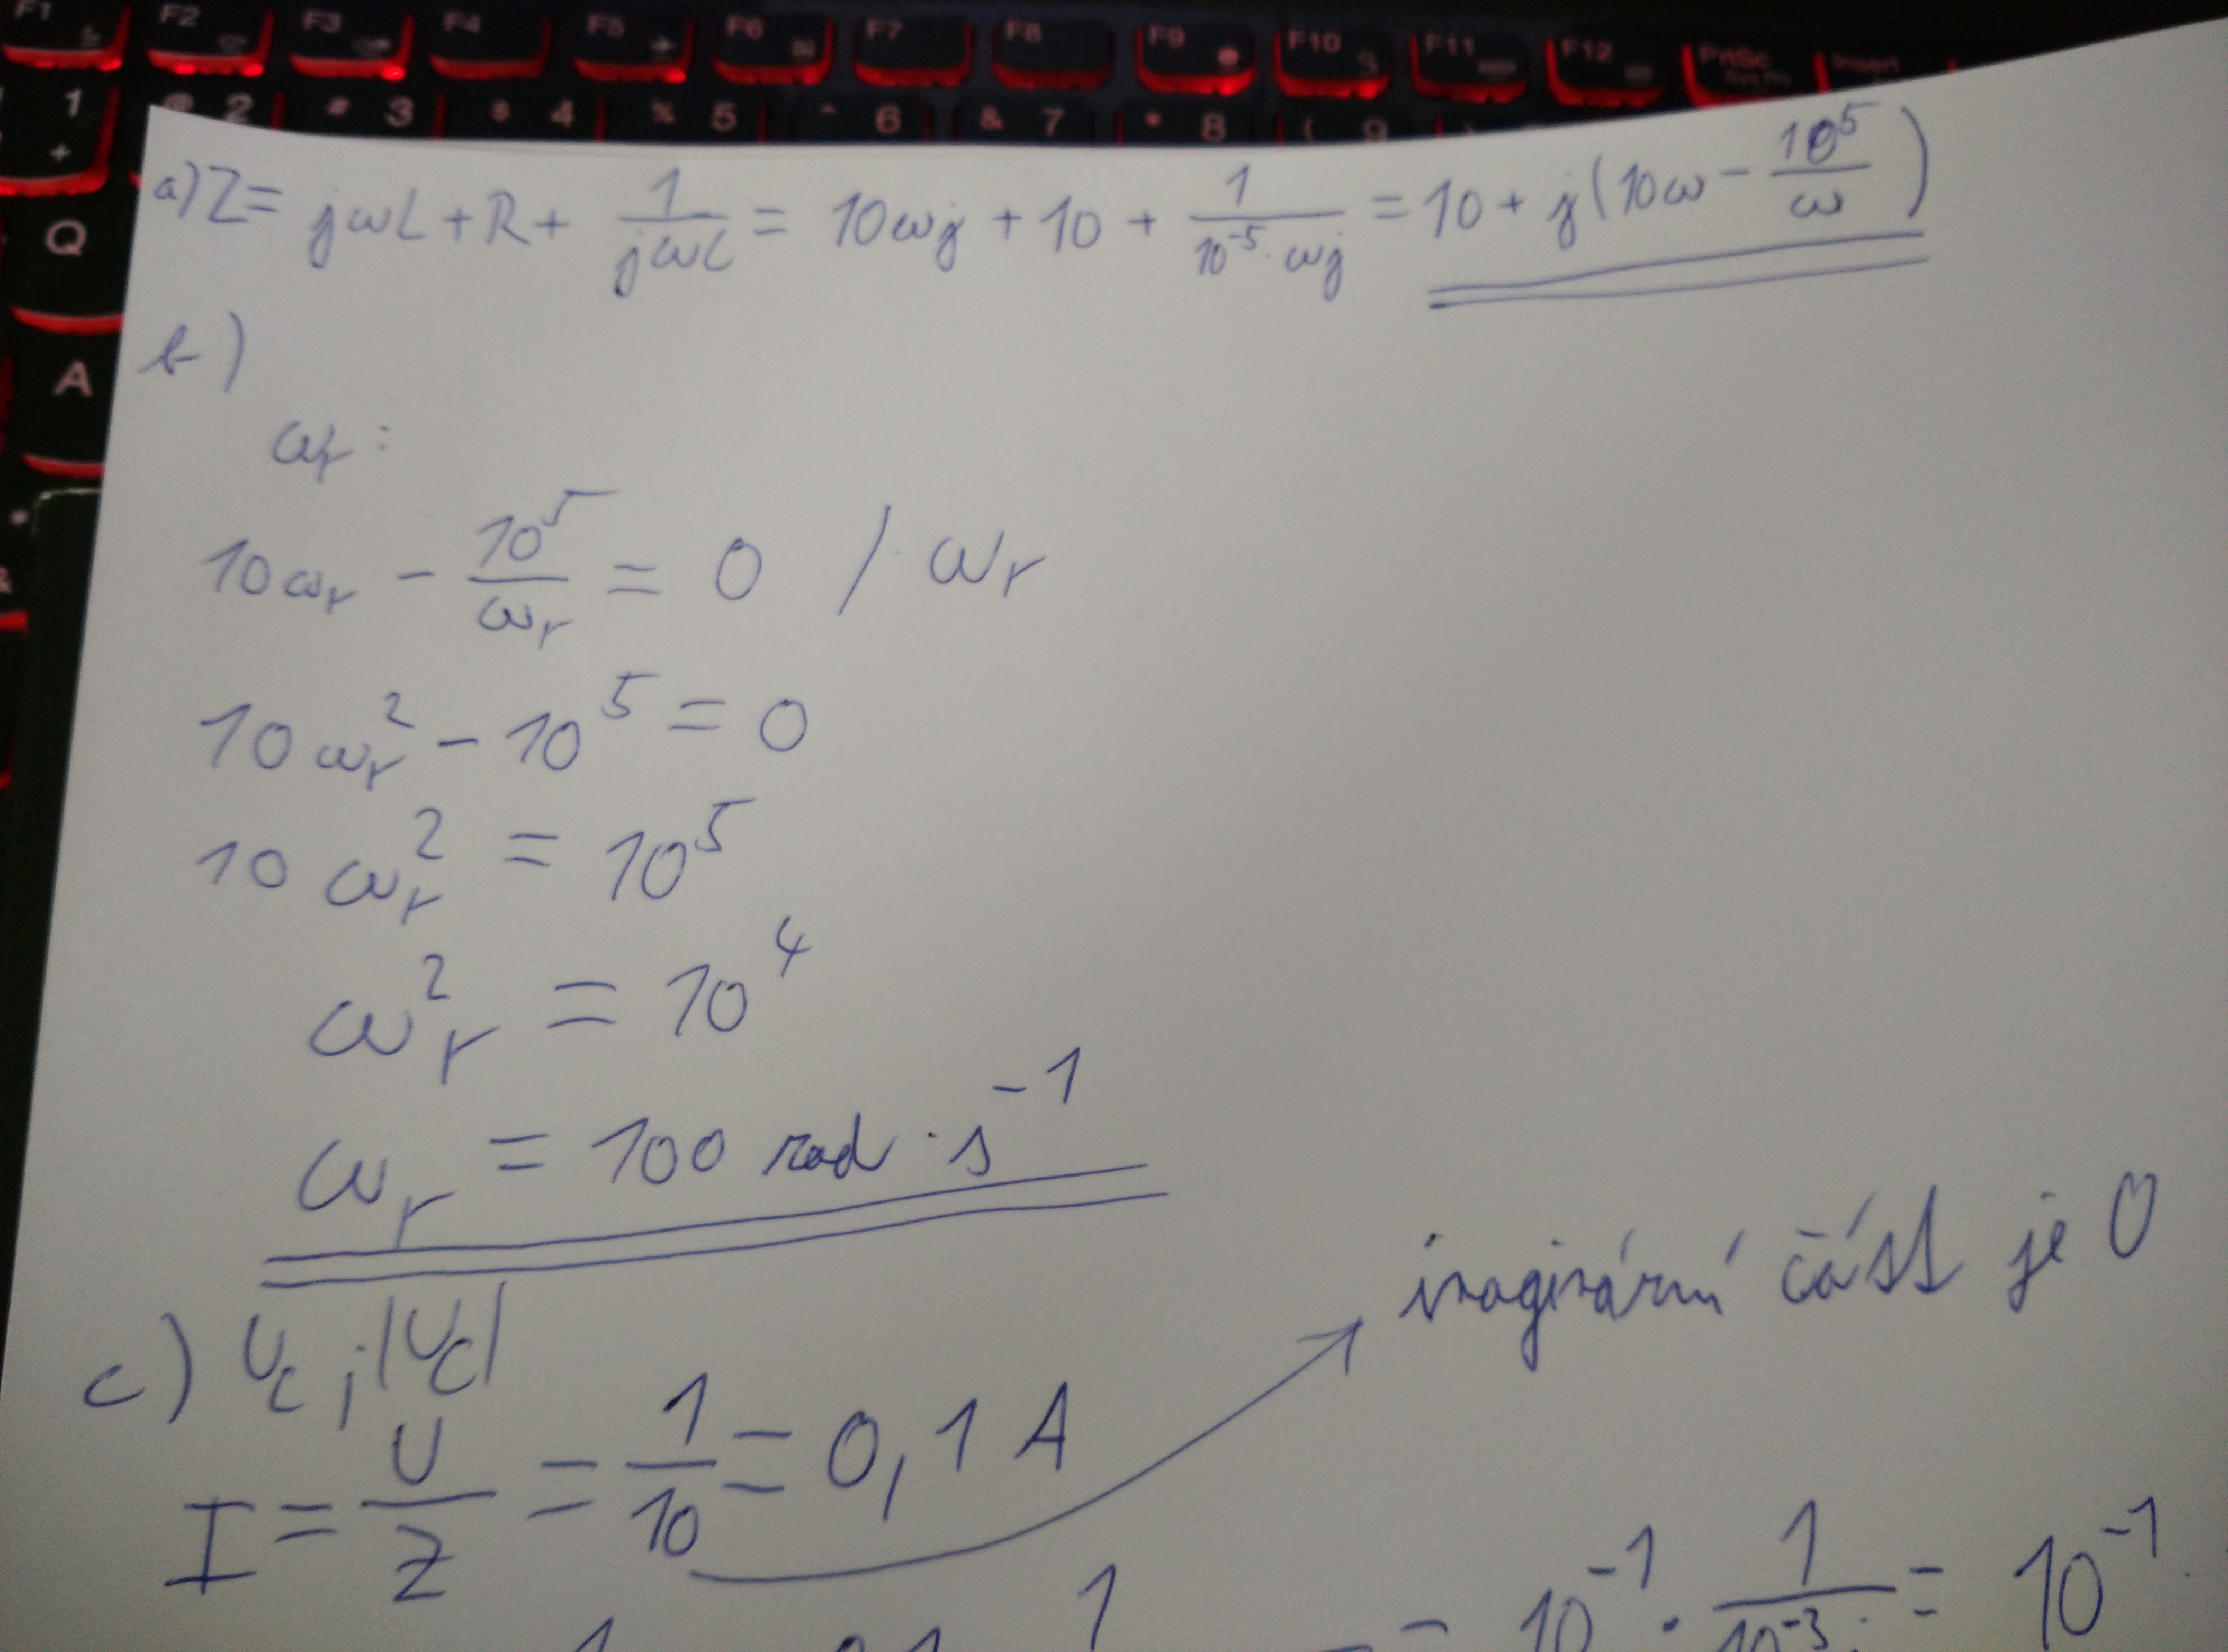 F1 F2 F3 F4 F5 F6 F7 F8 F9 F10 F11 F12 PrtSc Insert
1 @ 2 # 3 $ 4 % 5 ^ 6 & 7 * 8 ( 9
+
Q
A
a) Z = jωL + R + 1/(jωC) = 10ωj + 10 + 1/(10^-5 · ωj) = 10 + j(10ω - 10^5/ω)
b)
ωr:
10ωr - 10^5/ωr = 0 / · ωr
10ωr^2 - 10^5 = 0
10 ωr^2 = 10^5
ωr^2 = 10^4
ωr = 100 rad · s^-1
imaginární část je 0
c) Uc ; |Uc|
I = U/Z = 1/10 = 0,1 A
= 10^-1 · 1/(10^-3 j) = 10^-1 ·